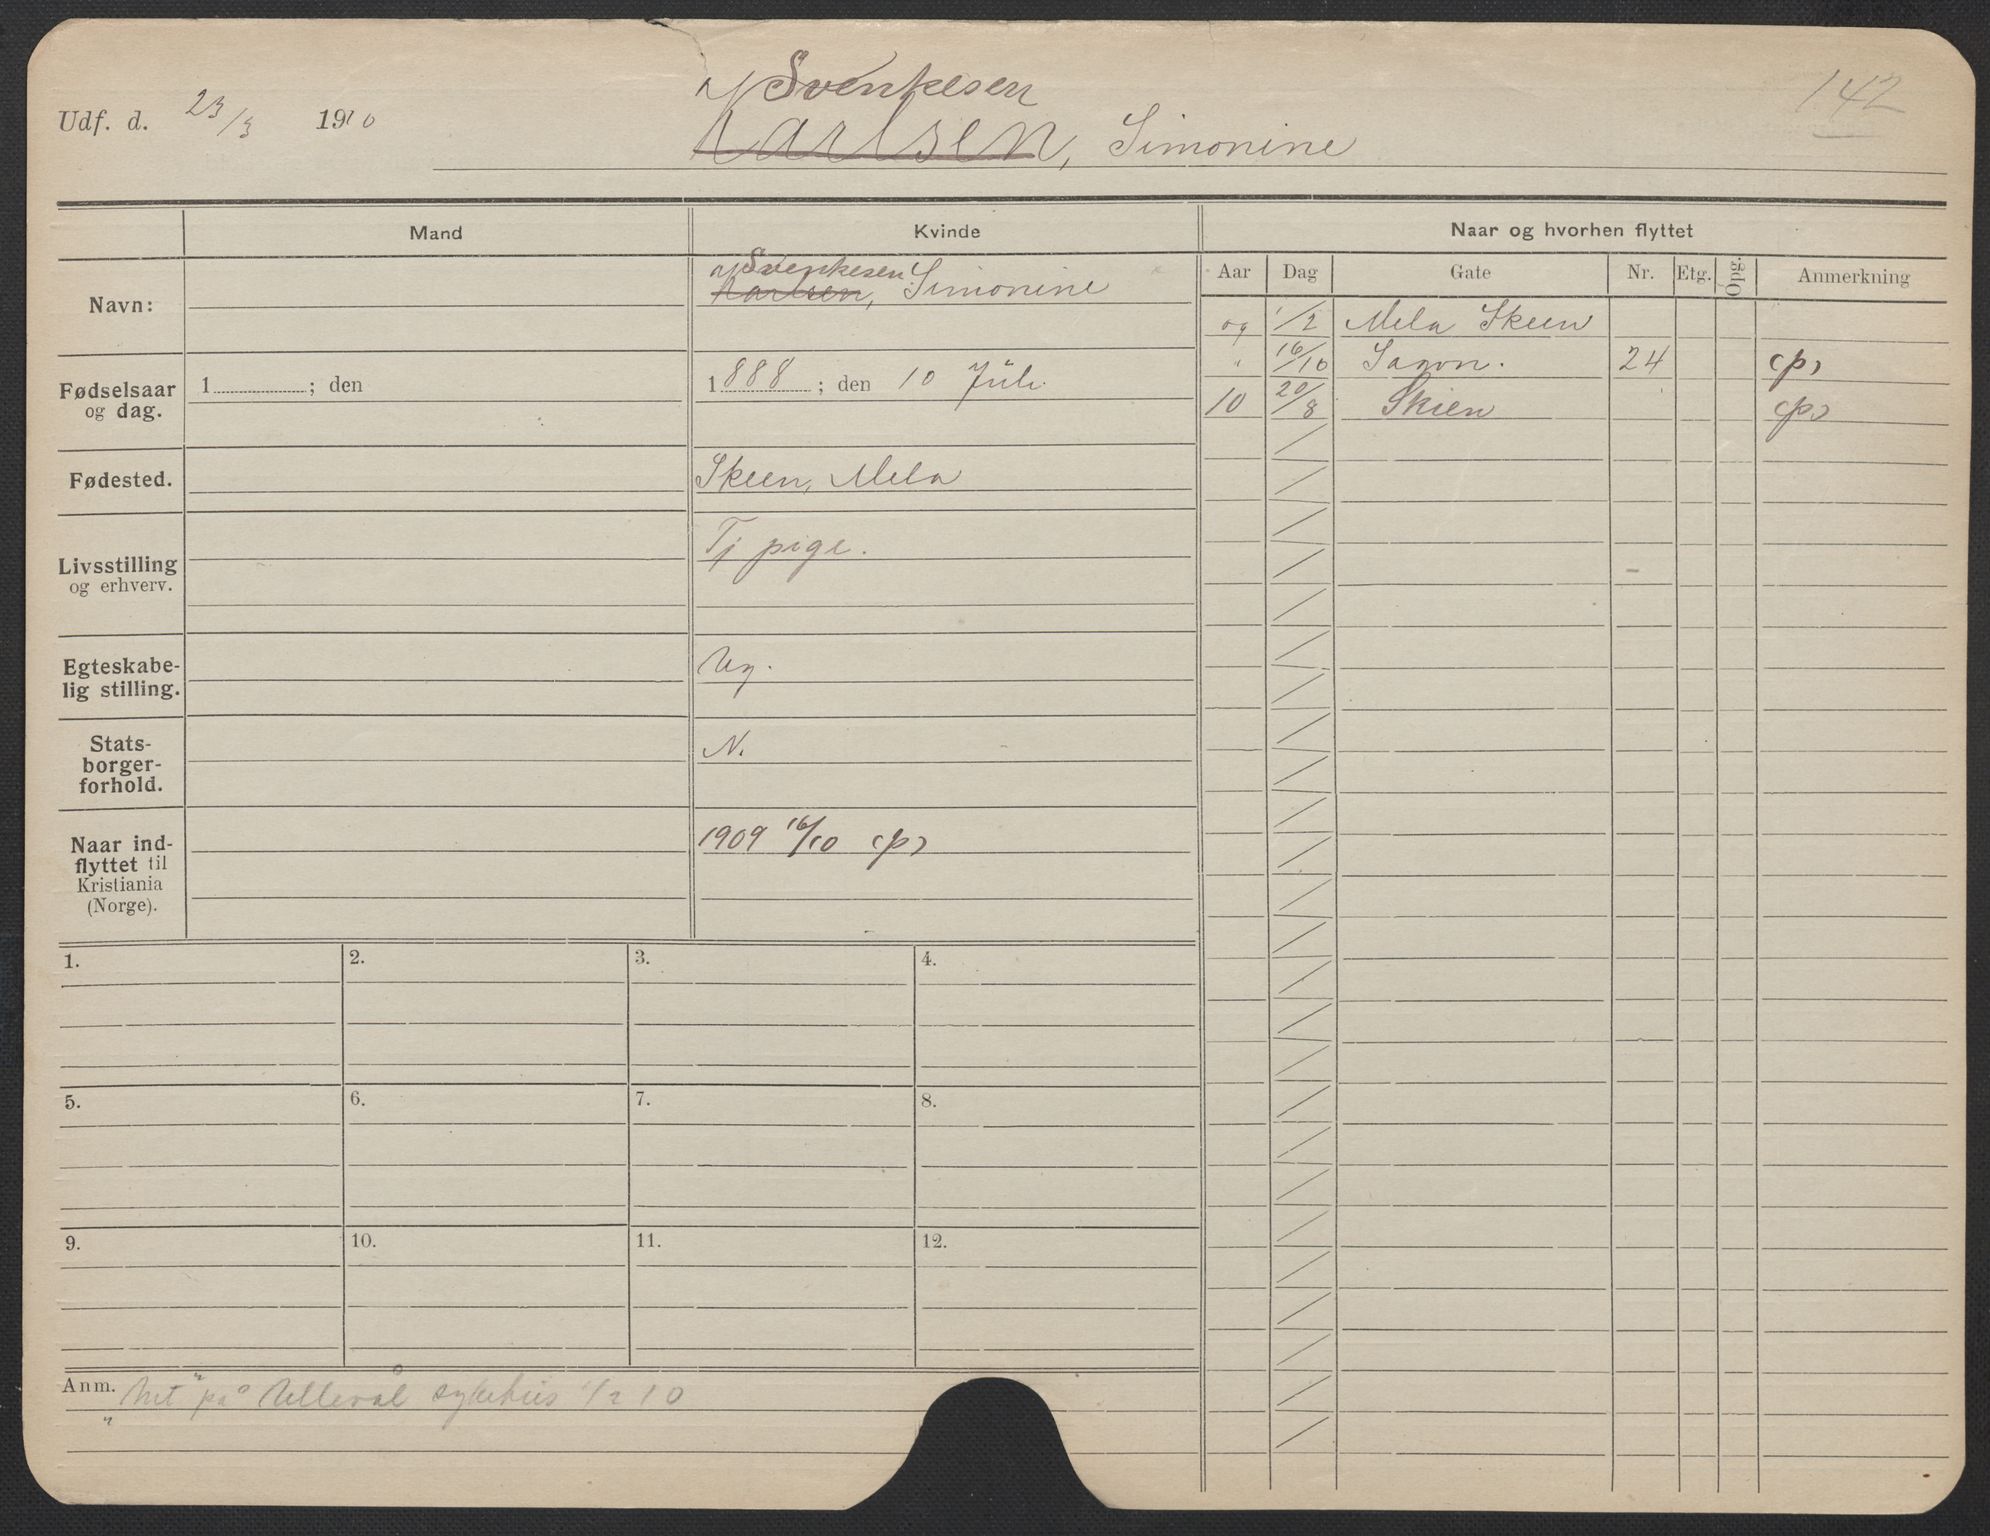 Svenkesen
Udf. d. 23/3 1910 Karlsen, Simonine 142
Mand Kvinde Naar og hvorhen flyttet
Aar Dag Gate Nr. Etg. Opg. Anmerkning
Svenkesen
Navn: Karlsen, Simonine
09 1/2 Mela Skeen
" 16/10 24 (p)
Fødselsaar og dag. 1 ; den 1888 ; den 10 Juli
10 20/8 Skien (p)
Fødested. Skeen, Mela
Livsstilling og erhverv. Tj pige.
Egteskabe-
lig stilling. Ug.
Stats-
borger-
forhold. N.
Naar ind-
flyttet til
Kristiania
(Norge). 1909 16/10 (p)
1. 2. 3. 4.
5. 6. 7. 8.
9. 10. 11. 12.
Anm. på Ullevål sykehus 1/2 10